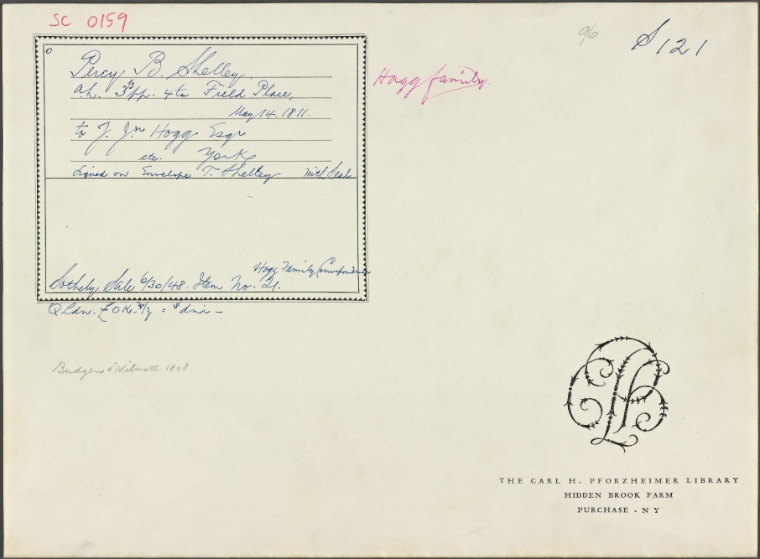 SC 0159
96
S 121
Percy B. Shelley
a.l. 3 pp. 4to Field Place,
May 14. 1811.
Hogg family.
to T. Jn Hogg Esqr
etc. York
Signed on Envelope T. Shelley with Seal
Hogg Family Correspondence
Sotheby Sale 6/30/48. Item No. 21.
1808
THE CARL H. PFORZHEIMER LIBRARY
HIDDEN BROOK FARM
PURCHASE · NY